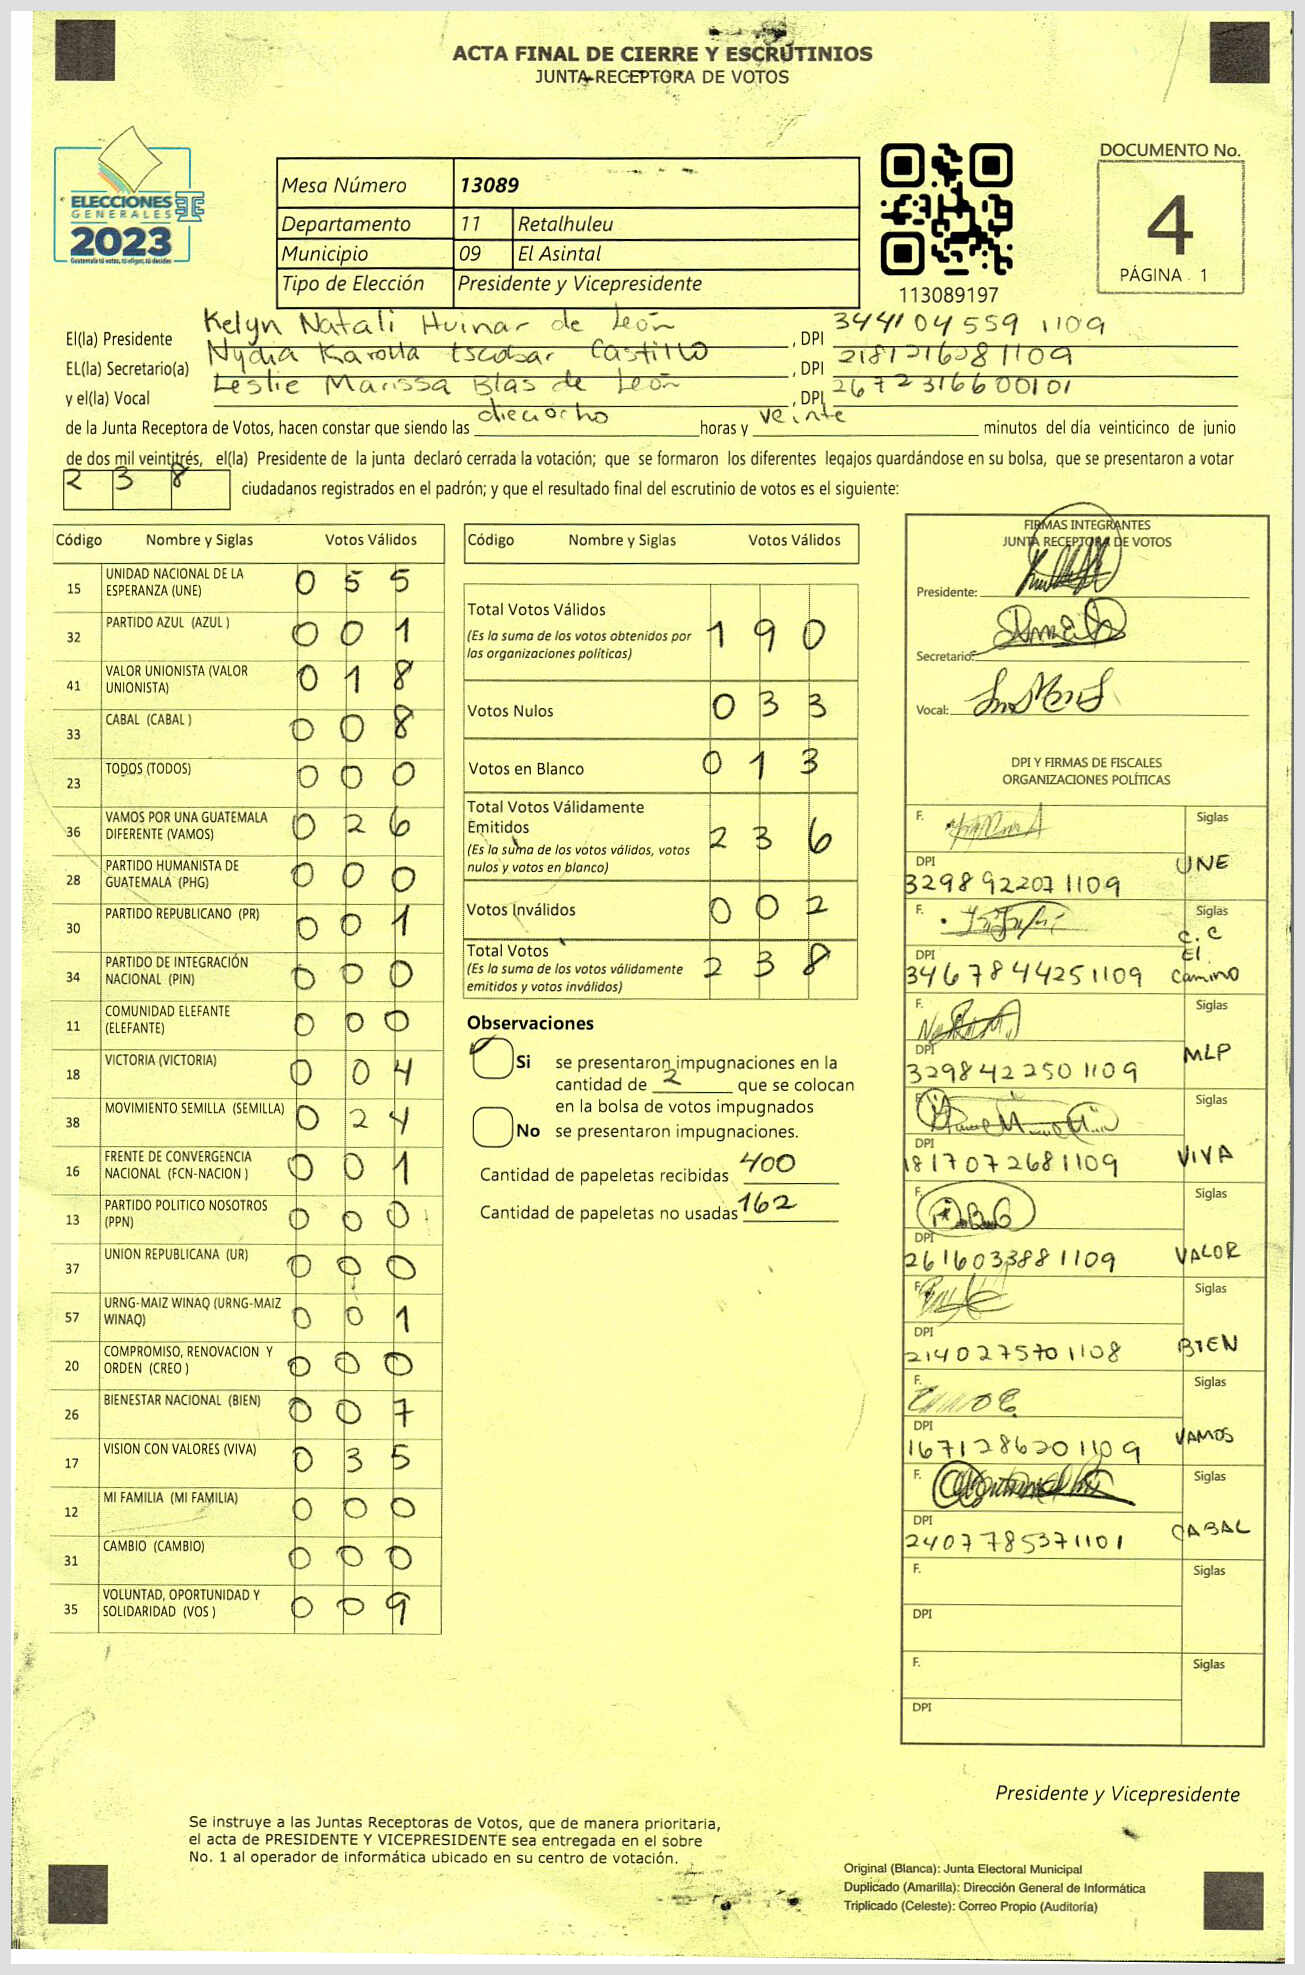 ACTA FINAL DE CIERRE Y ESCRUTINIOS
JUNTA RECEPTORA DE VOTOS
ELECCIONES
GENERALES
2023
Guatemala tú votas, tú eliges, tú decides
Mesa Número 13089
Departamento 11 Retalhuleu
Municipio 09 El Asintal
Tipo de Elección Presidente y Vicepresidente
113089197
DOCUMENTO No.
4
PÁGINA 1
El(la) Presidente Kelyn Natali Huinar de León, DPI 3441104559 1109
EL(la) Secretario(a) Nydia Karolla Escobar Castillo, DPI 2181216281109
y el(la) Vocal Leslie Marissa Blas de León, DPI 2672316600101
de la Junta Receptora de Votos, hacen constar que siendo las dieciocho horas y veinte minutos del día veinticinco de junio
de dos mil veintitrés, el(la) Presidente de la junta declaró cerrada la votación; que se formaron los diferentes legajos guardándose en su bolsa, que se presentaron a votar
2 3 8 ciudadanos registrados en el padrón; y que el resultado final del escrutinio de votos es el siguiente:
Código Nombre y Siglas Votos Válidos
15 UNIDAD NACIONAL DE LA ESPERANZA (UNE) 0 5 5
32 PARTIDO AZUL (AZUL ) 0 0 1
41 VALOR UNIONISTA (VALOR UNIONISTA) 0 1 8
33 CABAL (CABAL ) 0 0 8
23 TODOS (TODOS) 0 0 0
36 VAMOS POR UNA GUATEMALA DIFERENTE (VAMOS) 0 2 6
28 PARTIDO HUMANISTA DE GUATEMALA (PHG) 0 0 0
30 PARTIDO REPUBLICANO (PR) 0 0 1
34 PARTIDO DE INTEGRACIÓN NACIONAL (PIN) 0 0 0
11 COMUNIDAD ELEFANTE (ELEFANTE) 0 0 0
18 VICTORIA (VICTORIA) 0 0 4
38 MOVIMIENTO SEMILLA (SEMILLA) 0 2 4
16 FRENTE DE CONVERGENCIA NACIONAL (FCN-NACION ) 0 0 1
13 PARTIDO POLITICO NOSOTROS (PPN) 0 0 0
37 UNION REPUBLICANA (UR) 0 0 0
57 URNG-MAIZ WINAQ (URNG-MAIZ WINAQ) 0 0 1
20 COMPROMISO, RENOVACION Y ORDEN (CREO ) 0 0 0
26 BIENESTAR NACIONAL (BIEN) 0 0 7
17 VISION CON VALORES (VIVA) 0 3 5
12 MI FAMILIA (MI FAMILIA) 0 0 0
31 CAMBIO (CAMBIO) 0 0 0
35 VOLUNTAD, OPORTUNIDAD Y SOLIDARIDAD (VOS ) 0 0 9
Código Nombre y Siglas Votos Válidos
Total Votos Válidos 1 9 0
(Es la suma de los votos obtenidos por
las organizaciones políticas)
Votos Nulos 0 3 3
Votos en Blanco 0 1 3
Total Votos Válidamente
Emitidos 2 3 6
(Es la suma de los votos válidos, votos
nulos y votos en blanco)
Votos Inválidos 0 0 2
Total Votos 2 3 8
(Es la suma de los votos válidamente
emitidos y votos inválidos)
Observaciones
Si se presentaron impugnaciones en la
cantidad de 2 que se colocan
en la bolsa de votos impugnados
No se presentaron impugnaciones.
Cantidad de papeletas recibidas 400
Cantidad de papeletas no usadas 162
FIRMAS INTEGRANTES
JUNTA RECEPTORA DE VOTOS
Presidente:
Secretario:
Vocal:
DPI Y FIRMAS DE FISCALES
ORGANIZACIONES POLÍTICAS
F. Siglas
DPI UNE
3298922071109
F. Siglas
C.C El Camino
DPI
3467844251109
F. Siglas
DPI MLP
3298422501109
F. Siglas
DPI VIVA
1817072681109
F. Siglas
DPI VALOR
2616033881109
F. Siglas
DPI BIEN
2140275701108
F. Siglas
DPI VAMOS
1671286201109
F. Siglas
DPI CABAL
2407785371101
F. Siglas
DPI
F. Siglas
DPI
Presidente y Vicepresidente
Se instruye a las Juntas Receptoras de Votos, que de manera prioritaria,
el acta de PRESIDENTE Y VICEPRESIDENTE sea entregada en el sobre
No. 1 al operador de informática ubicado en su centro de votación.
Original (Blanca): Junta Electoral Municipal
Duplicado (Amarilla): Dirección General de Informática
Triplicado (Celeste): Correo Propio (Auditoría)